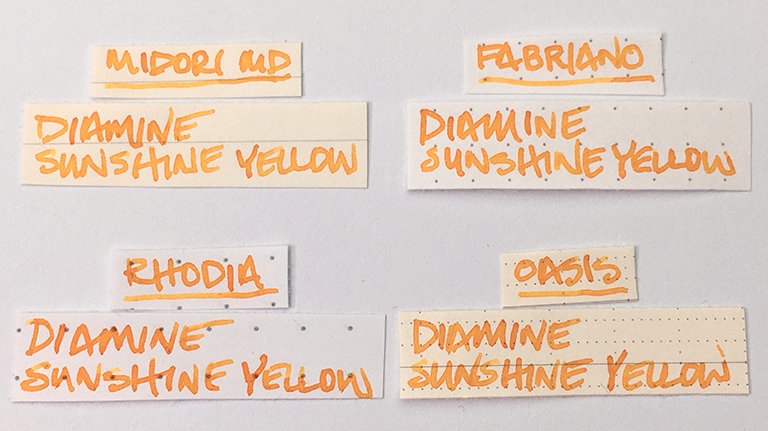 MIDORI MD
DIAMINE
SUNSHINE YELLOW
FABRIANO
DIAMINE
SUNSHINE YELLOW
RHODIA
DIAMINE
SUNSHINE YELLOW
OASIS
DIAMINE
SUNSHINE YELLOW